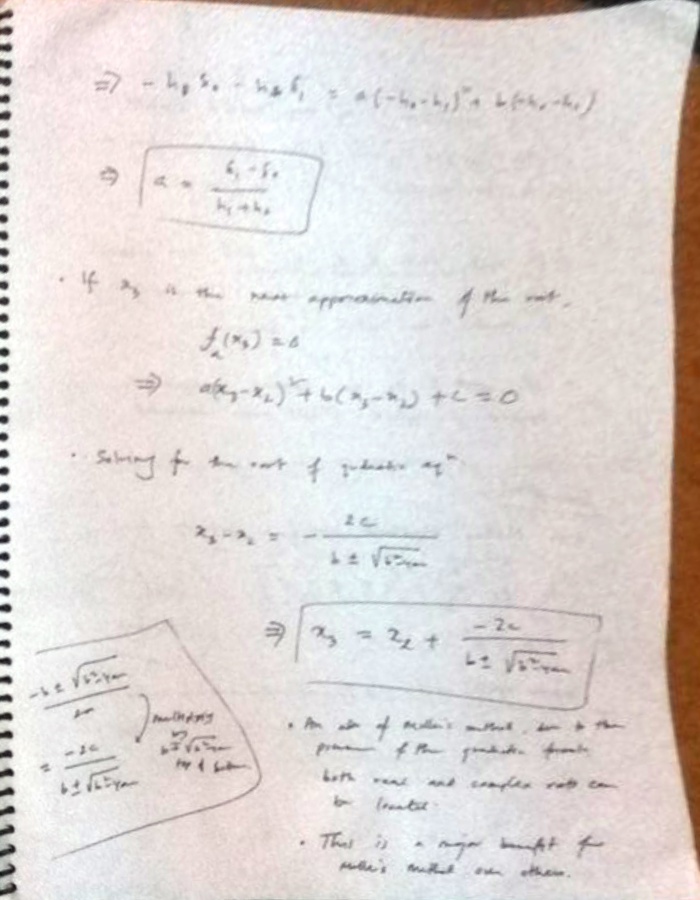 ⇒ - h₀ δ₀ - h₁ δ₁ = a(-h₀-h₁)² + b(-h₀-h₁)
⇒ a = (δ₁ - δ₀)/(h₁ + h₀)
· If x₃ is the next approximation of the root,
f₂(x₃) = 0
⇒ a(x₃-x₂)² + b(x₃-x₂) + c = 0
· Solving for the root of quadratic eqⁿ
x₃ - x₂ = - 2c/(b ± √(b²-4ac))
⇒ x₃ = x₂ + -2c/(b ± √(b²-4ac))
-b ± √(b²-4ac)/2a
multiply
by
b ± √(b²-4ac)
top & bottom
= -2c/(b ± √(b²-4ac))
· An of Muller's method, due to the
presence of the quadratic formula
both real and complex roots can
be located.
· This is a major benefit for
Muller's method over others.